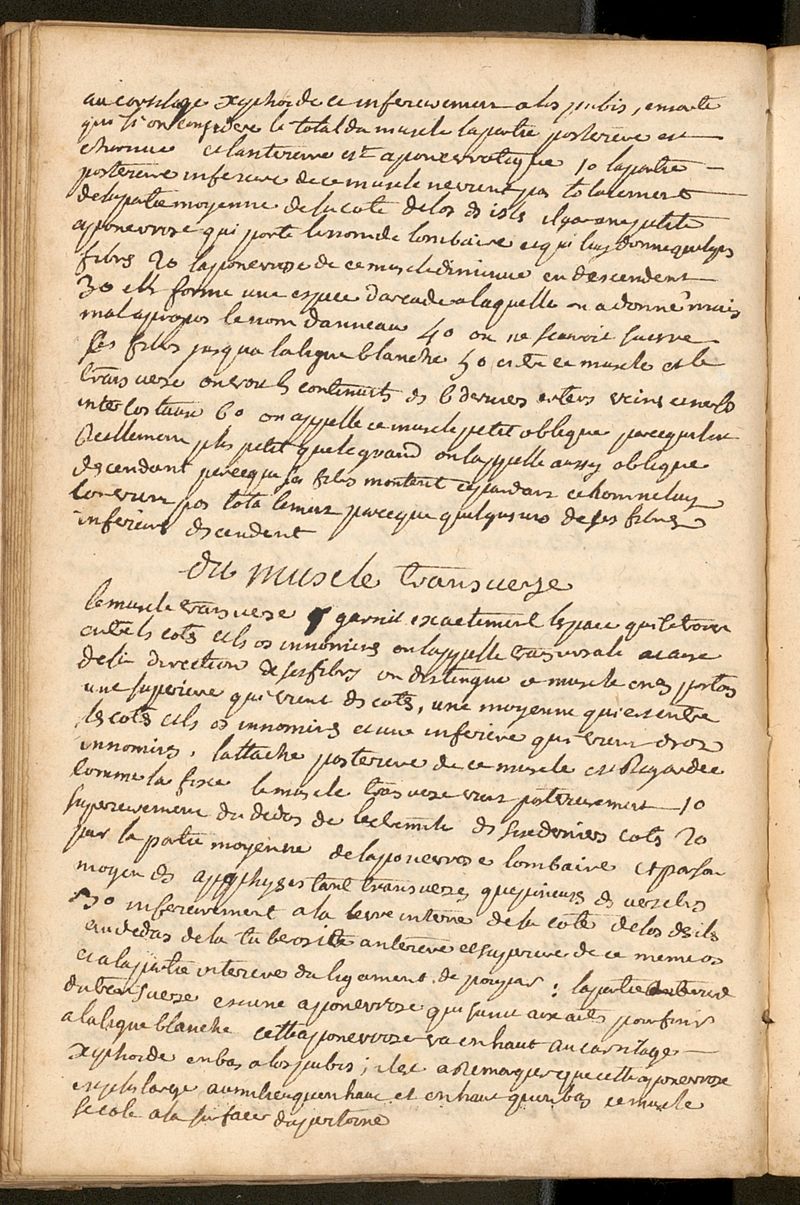 au cartilage xyphoide et inferieurement a los pubis, ensorte
que si on considere le total du muscle la partie posterieure est
charnue et lanterieure est aponevrotique 10 la partie
posterieure inferieure de ce muscle ne vient pas totalement
de la partie moyenne de la cote de los des isles il ya une petite
aponevrose qui porte le nom de lombaire et qui luy donne quelques
fibres 20 laponevrose de ce muscle diminue en descendent
30 elle forme une espece darcade a laquelle on a donné mais
mal apropos le nom danneau 40 on ne scauroit suivre
ses fibres jusqua la ligne blanche 50 entre ce muscle et le
transverse on voit les continuites des 6 dernieres arteres veines et nerfs
intercostaux 60 on appelle ce muscle petit oblique parcequil est
reellement plus petit que le grand on lappelle aussy oblique
descendant parceque ses fibres montent cependant ce nom ne luy
convient pas totalement parceque quelques unes de ses fibres
inferieures descendent
du muscle transverse
le muscle transverse garnit exactement lespace qui se trouve
entre les cotes et les os innominés on lappelle transversale a cause
de la direction de ses fibres on distingue ce muscle en 3 portions
une superieure qui vient des cotes, une moyenne qui est entre
les cotes et les os innominés et une inferieure qui vient des os
innominés, lattache posterieure de ce muscle est regardée
comme la fixe le muscle transverse vient posterieurement 10
superieurement du dedas de lechancrure des six derniers cotes 20
par la partie moyenne de laponevrose lombaire et par son
moyen des apophyses tant transverses quepineuses des vertebres
30 inferieurement a la levre interne de la cote de los des iles
au dedas de la tuberosité anterieure et superieure de ce meme os
et a la partie interieure du ligament de poupar : la partie anterieure
du transverse est une aponevrose qui sunit aux autres pour finir
a la ligne blanche cette aponevrose va en haut au cartilage
xyphoide en bas a los pubis; il est a remarquer que cette aponevrose
est plus large au milieu quen haut et en haut quen bas ce muscle
se cole a la surface du peritoine